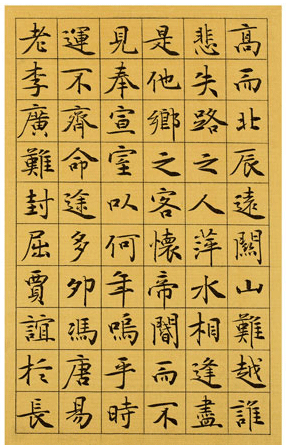 高而北辰遠關山難越誰
悲失路之人萍水相逢盡
是他鄉之客懷帝閽而不
見奉宣室以何年嗚乎時
運不齊命途多舛馮唐易
老李廣難封屈賈誼於長